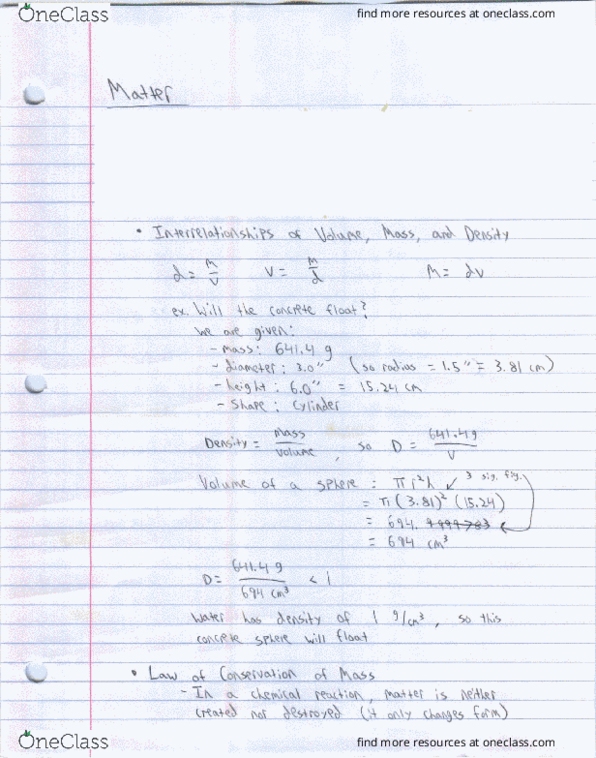 OneClass
find more resources at oneclass.com
Matter
• Interrelationships of Volume, Mass, and Density
d = M/V V = M/d M = dv
ex. Will the concrete float?
We are given:
- mass: 641.4 g
- diameter: 3.0" (so radius = 1.5" = 3.81 cm)
- height: 6.0" = 15.24 cm
- Shape: Cylinder
Density = mass/volume, so D = 641.4g/V
Volume of a sphere: πr²h 3 sig. fig.
= π(3.81)²(15.24)
= 694.9999783
= 694 cm³
D = 641.4 g/694 cm³ < 1
Water has density of 1 g/cm³, so this
concrete sphere will float
• Law of Conservation of Mass
- In a chemical reaction, matter is neither
created nor destroyed (it only changes form)
OneClass
find more resources at oneclass.com